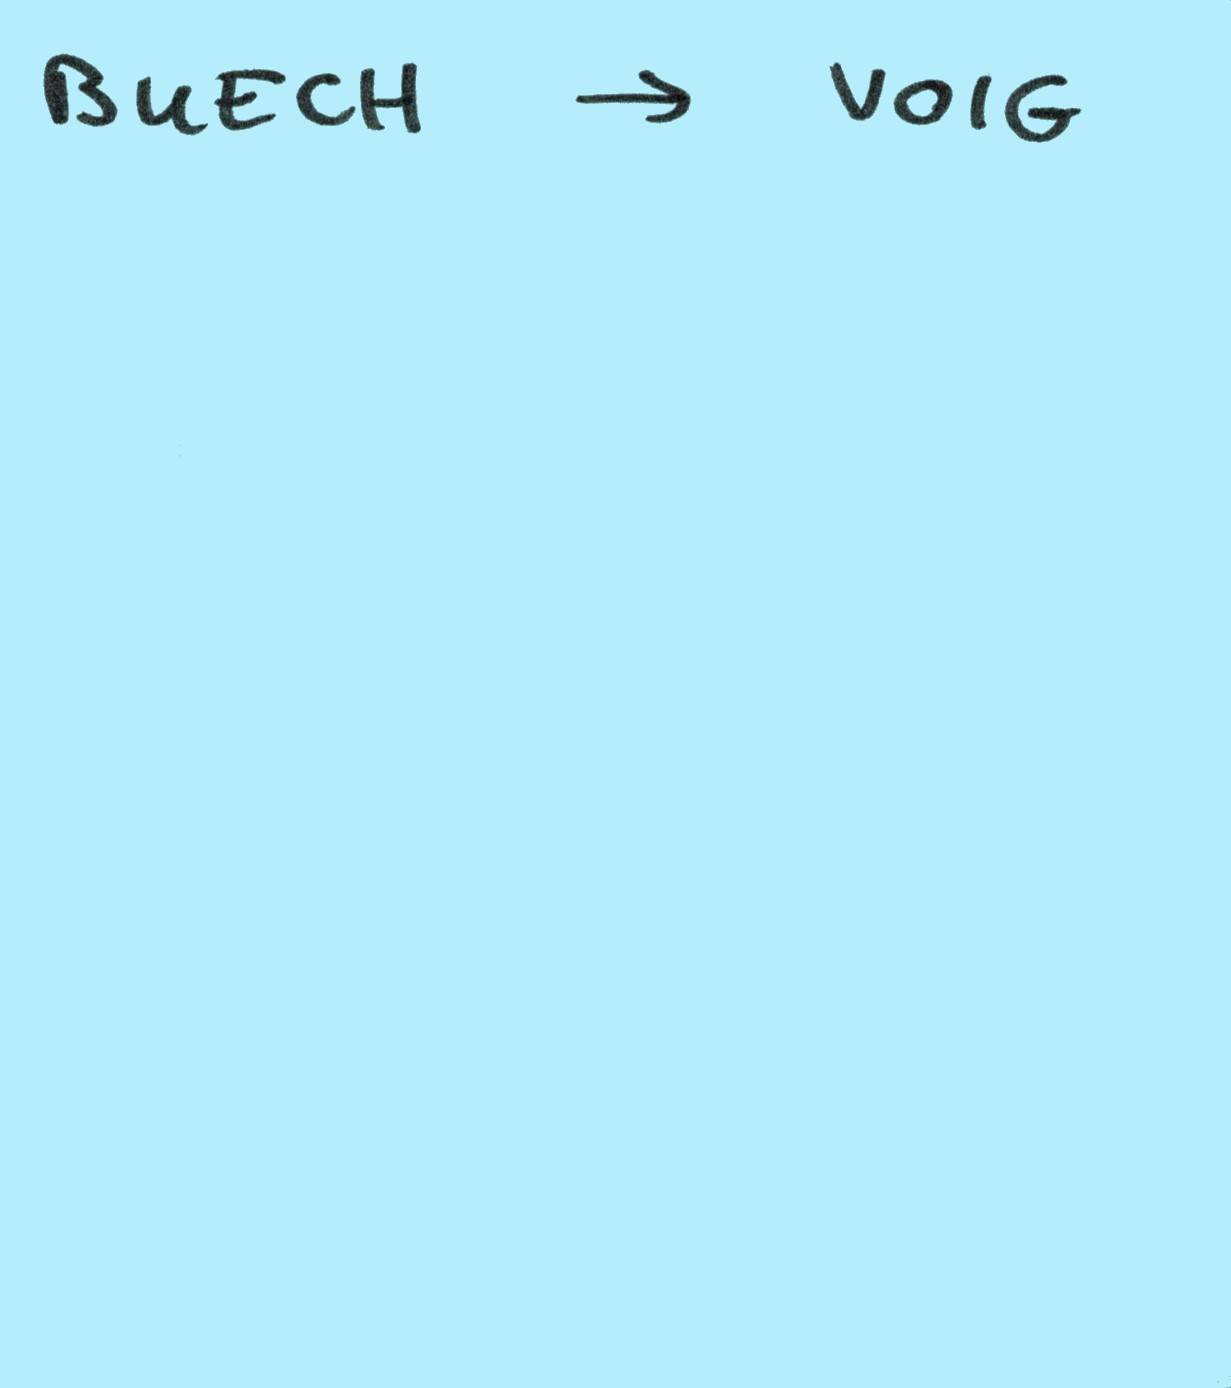 BUECH → VOIG